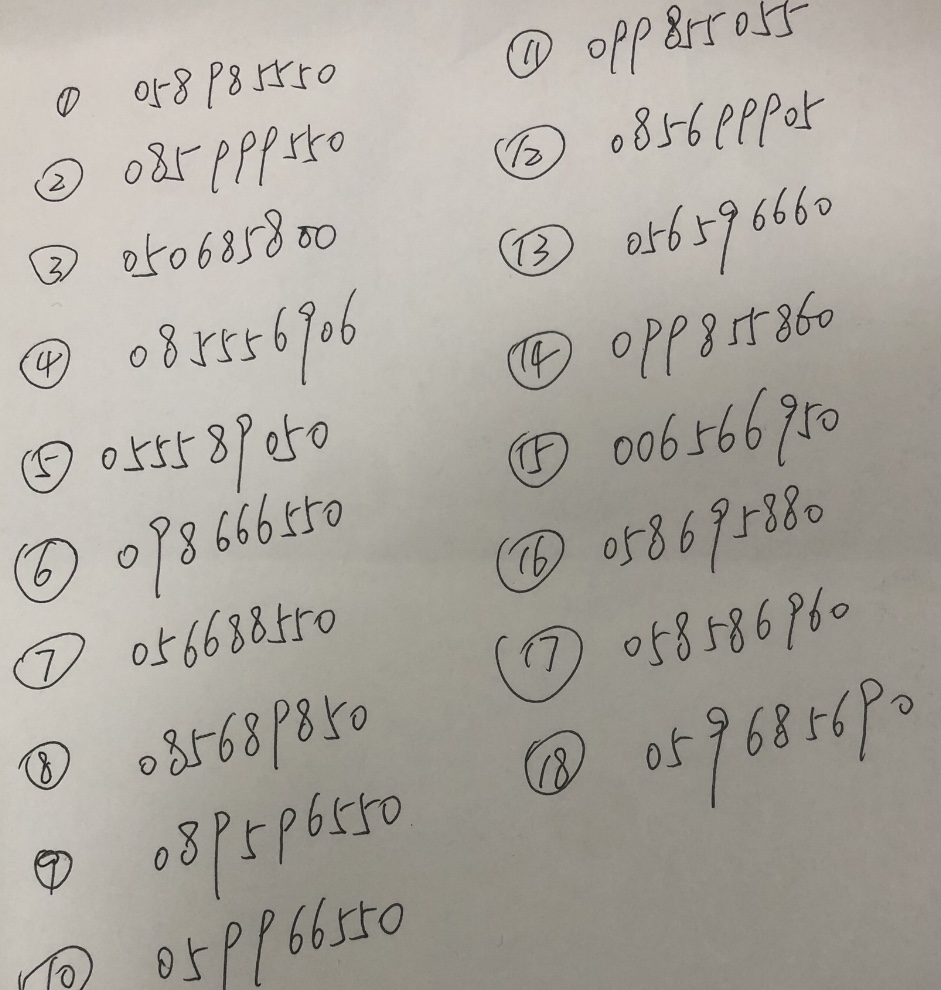 ① 058985550
② 085999550
③ 050685800
④ 085556906
⑤ 055589050
⑥ 098666550
⑦ 056688550
⑧ 085689850
⑨ 089596550
⑩ 059966550
⑪ 099855055
⑫ 085699905
⑬ 056596660
⑭ 099855860
⑮ 006566950
⑯ 058695880
⑰ 058586960
⑱ 059685690